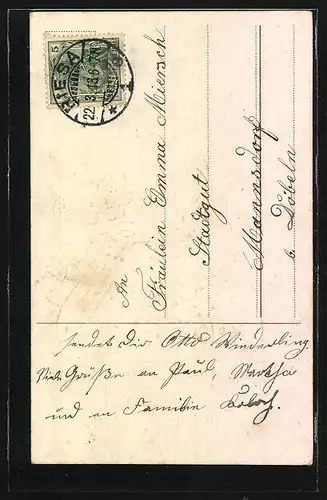 5
RIESA
22.3.13.6-7N.
An
Fräulein Emma Miersch
Stadtgut
Mannsdorf
b. Döbeln
sendet Dir Otto Winderling
Viele Grüße an Paul, Martha
und an Familie